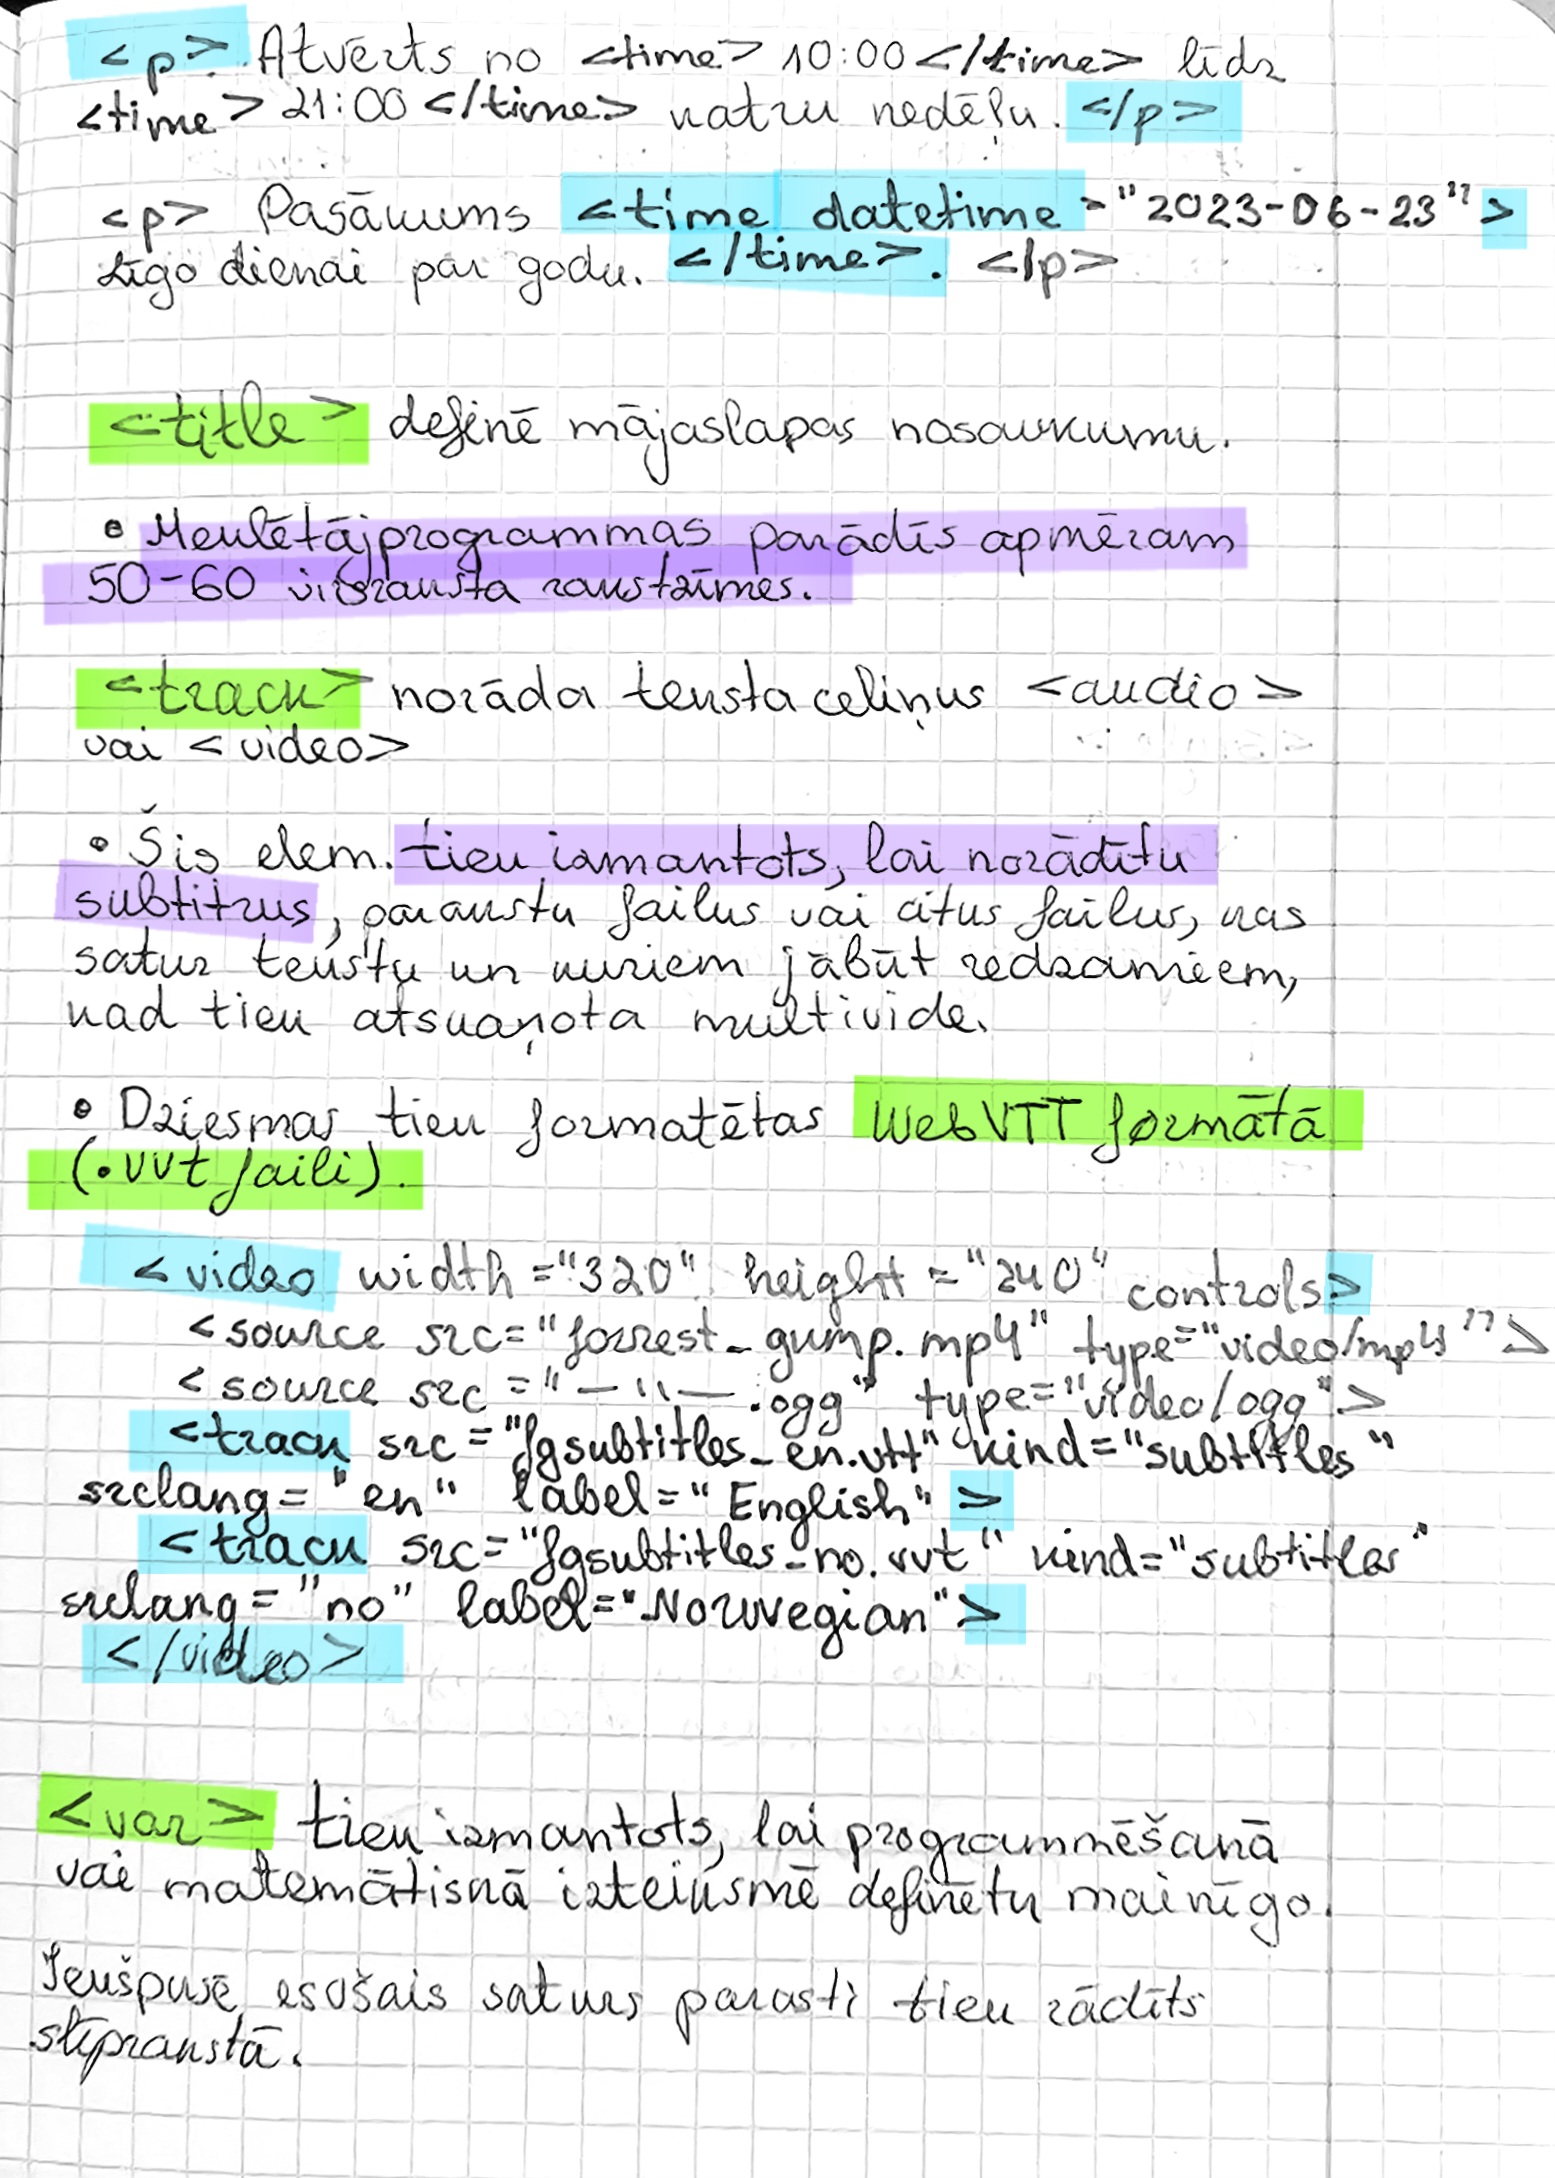 <p> Atvērts no <time> 10:00 </time> līdz
<time> 21:00 </time> katru nedēļu. </p>
<p> Pasākums <time datetime="2023-06-23">
Līgo dienai par godu. </time>. </p>
<title> definē mājaslapas nosaukumu.
• Meklētājprogrammas parādīs apmēram
50-60 virsraksta rakstzīmes.
<track> norāda teksta celiņus <audio>
vai <video>
• Šis elem. tiek izmantots, lai norādītu
subtitrus, parakstu failus vai citus failus, kas
satur tekstu un kuriem jābūt redzamiem,
kad tiek atskaņota multivide.
• Dziesmas tiek formatētas WebVTT formātā
(.vvt faili).
<video width="320" height="240" controls>
<source src="forrest_gump.mp4" type="video/mp4">
<source src="—"—.ogg" type="video/ogg">
<track src="fgsubtitles_en.vtt" kind="subtitles"
srclang="en" label="English">
<track src="fgsubtitles_no.vvt" kind="subtitles"
srclang="no" label="Norwegian">
</video>
<var> tiek izmantots, lai programmēšanā
vai matemātiskā izteiksmē definētu mainīgo.
Iekšpusē esošais saturs parasti tiek rādīts
slīprakstā.